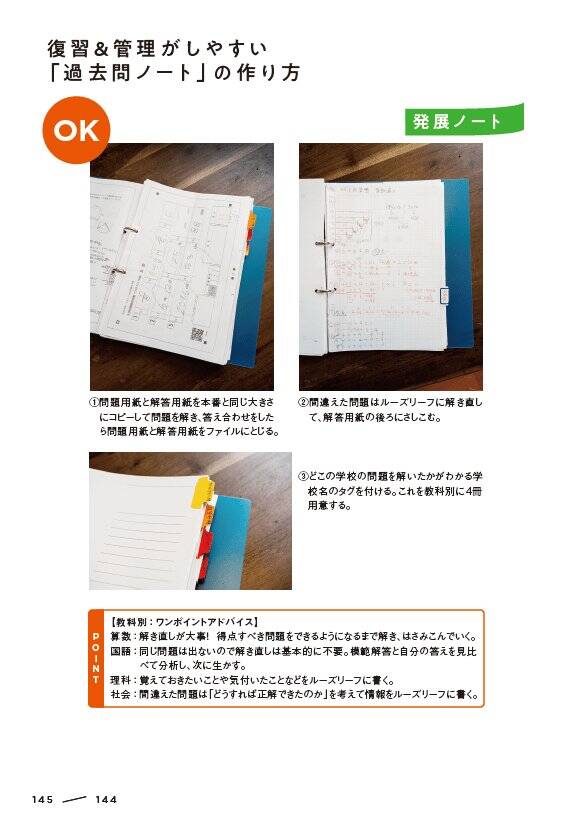 復習&管理がしやすい
「過去問ノート」の作り方
OK
発展ノート
①問題用紙と解答用紙を本番と同じ大きさ
にコピーして問題を解き、答え合わせをした
ら問題用紙と解答用紙をファイルにとじる。
②間違えた問題はルーズリーフに解き直し
て、解答用紙の後ろにさしこむ。
③どこの学校の問題を解いたかがわかる学
校名のタグを付ける。これを教科別に4冊
用意する。
POINT
【教科別:ワンポイントアドバイス】
算数:解き直しが大事! 得点すべき問題をできるようになるまで解き、はさみこんでいく。
国語:同じ問題は出ないので解き直しは基本的に不要。模範解答と自分の答えを見比
べて分析し、次に生かす。
理科:覚えておきたいことや気付いたことなどをルーズリーフに書く。
社会:間違えた問題は「どうすれば正解できたのか」を考えて情報をルーズリーフに書く。
145 144